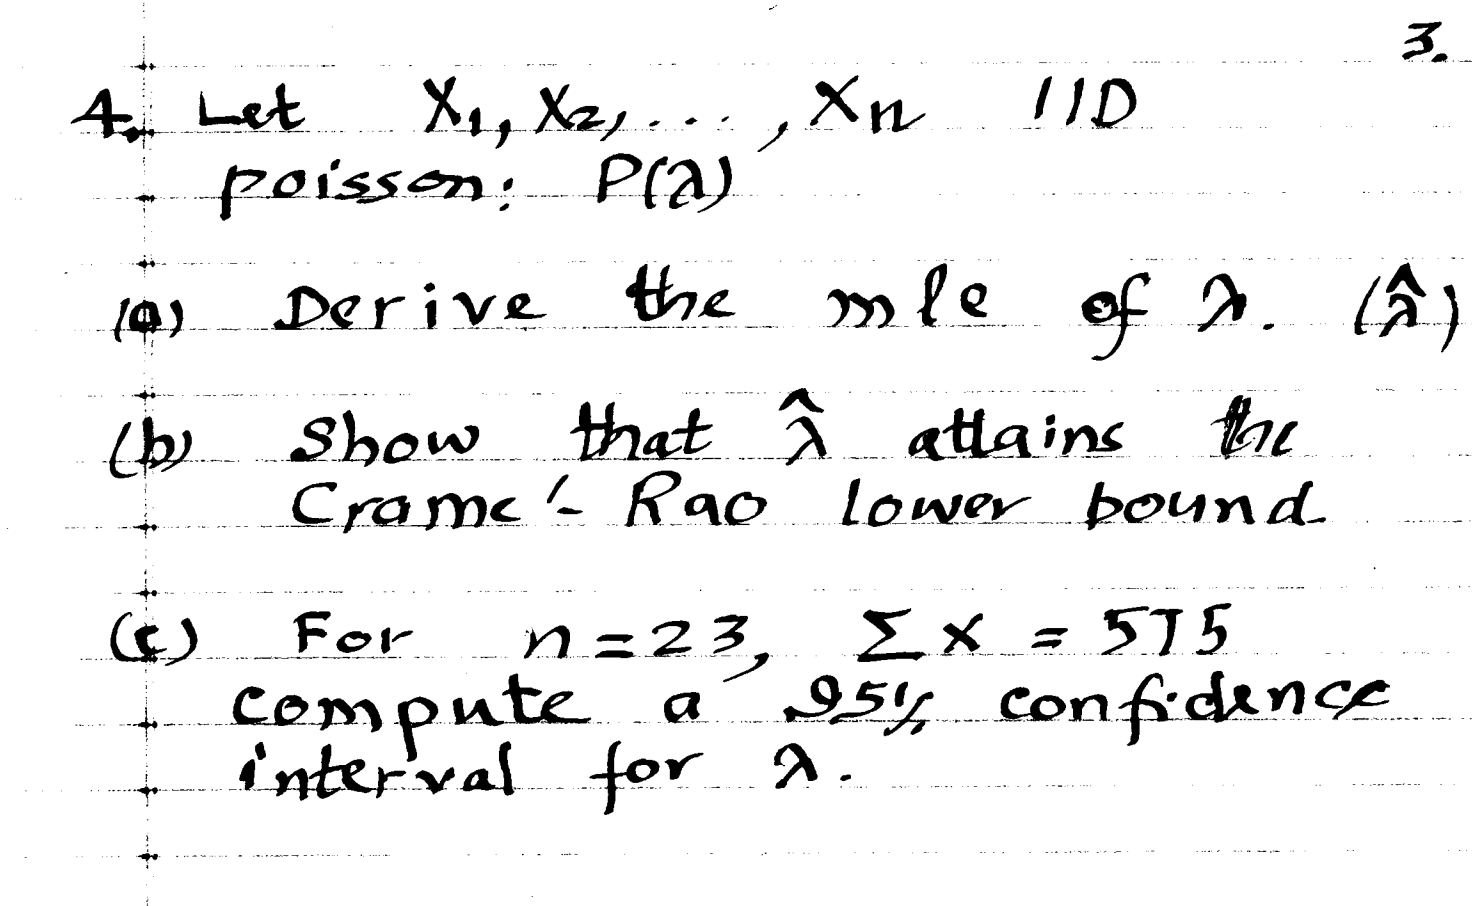 3.
4. Let X₁, X₂, ..., Xn IID
poisson: P(λ)
(a) Derive the mle of λ. (λ̂)
(b) Show that λ̂ attains the
Crame'- Rao lower bound
(c) For n=23, Σx = 575
compute a 95% confidence
interval for λ.